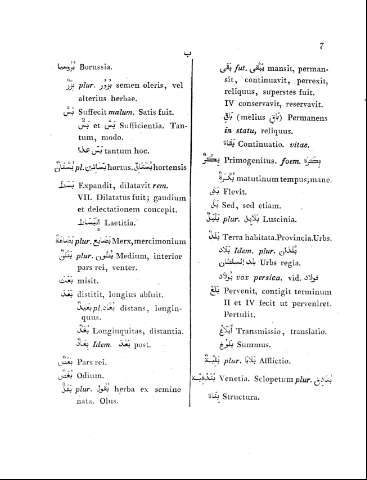 7
ب
بُرُوسيا Borussia.
بَزْر plur. بُزُور semen oleris, vel
alterius herbae.
بَسّ Suffecit malum. Satis fuit.
بَسّ et بَسّ Sufficientia. Tan-
tum, modo.
بَسّ هذا tantum hoc.
بُسْتَان pl. بَسَاتِين hortus. hortensis
بَسَط Expandit, dilatavit rem.
VII. Dilatatus fuit; gaudium
et delectationem concepit.
Laetitia.
بِضَاعَة plur. بَضَايِع Merx, mercimonium
بَطْن plur. بُطُون Medium, interior
pars rei, venter.
بَعَث misit.
بَعُد distitit, longius abfuit.
بَعِيد pl. distans, longin-
quus.
بُعْد Longinquitas, distantia.
بُعَاد Idem. بَعْد post.
بَعْض Pars rei.
بُغْض Odium.
بَقْل plur. بُقُول herba ex semine
nata. Olus.
بَقِي fut. يَبْقَي mansit, perman-
sit, continuavit, perrexit,
reliquus, superstes fuit.
IV conservavit, reservavit.
بَاقٍ (melius بَاقِي) Permanens
in statu, reliquus.
بَقَاء Continuatio. vitae.
بِكْر Primogenitus. foem. بِكْرَة
بُكْرَة matutinum tempus, mane.
بَكَي Flevit.
بَل Sed, sed etiam.
بُلْبُل plur. بَلَابِل Luscinia.
بَلَد Terra habitata. Provincia. Urbs.
بِلَاد Idem. plur. بُلْدَان
بلد السلطان Urbs regia.
بُولَاد vox persica. vid. فولاد
بَلَغ Pervenit, contigit terminum
II et IV fecit ut perveniret.
Pertulit.
إِبْلَاغ Transmissio, translatio.
بُلُوغ Summus.
بَلِيَّة plur. بَلَايَا Afflictio.
بُنْدُقِيَّة Venetia. Sclopetum plur. بَنَادِق
بِنَاء Structura.